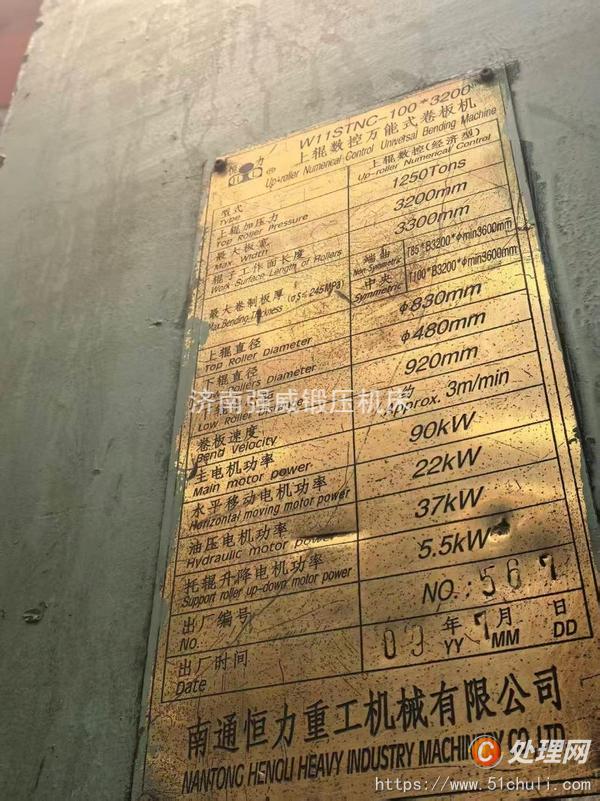 W11STNC-100*3200
恒力
上辊数控万能式卷板机
Up-roller Numerical Control Universal Bending Machine
型式
Type
上辊数控(经济型)
Up-roller Numerical Control
上辊加压力
Top Roller Pressure
1250Tons
最大板宽
Max Width
3200mm
辊子工作面长度
Work Surface Length of Rollers
3300mm
最大卷制板厚
Max.Bending Thickness (σs≤245MPa)
端曲
Non-Symmetric
T85*B3200*Φmin3600mm
中央
Symmetric
T100*B3200*Φmin3600mm
上辊直径
Top Roller Diameter
Φ830mm
下辊直径
Rollers Diameter
Φ480mm
Low Roller
920mm
卷板速度
Bend Velocity
约
Approx. 3m/min
主电机功率
Main motor power
90kW
水平移动电机功率
Horizontal moving motor power
22kW
油压电机功率
Hydraulic motor power
37kW
托辊升降电机功率
Support roller up-down motor power
5.5kW
出厂编号
No.
NO.: 567
出厂时间
Date
09 年 7 月 日
YY MM DD
南通恒力重工机械有限公司
NANTONG HENGLI HEAVY INDUSTRY MACHINERY CO.,LTD.
济南强威锻压机床
C 处理网
https://www.51chuli.com